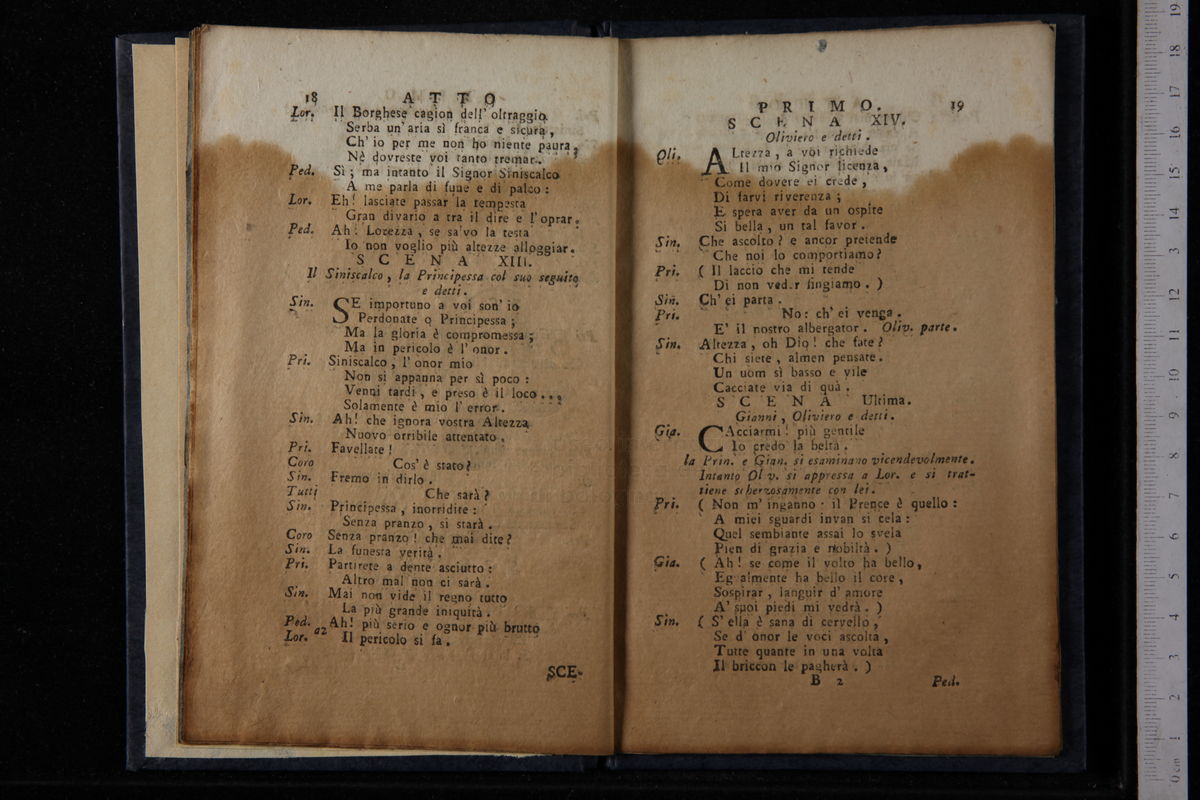 18 ATTO
Lor. Il Borghese cagion dell' oltraggio
Serba un' aria sì franca e sicura,
Ch' io per me non ho niente paura,
Nè dovreste voi tanto tremar.
Ped. Sì; ma intanto il Signor Siniscalco
A me parla di fune e di palco:
Lor. Eh! lasciate passar la tempesta
Gran divario a tra il dire e l' oprar.
Ped. Ah! Lorezza, se salvo la testa
Io non voglio più altezze alloggiar.
SCENA XIII.
Il Siniscalco, la Principessa col suo seguito
e detti.
Sin. SE importuno a voi son' io
Perdonate o Principessa;
Ma la gloria è compromessa;
Ma in pericolo è l' onor.
Pri. Siniscalco, l' onor mio
Non si appanna per sì poco:
Venni tardi, e preso è il loco...
Solamente è mio l' error.
Sin. Ah! che ignora vostra Altezza
Nuovo orribile attentato.
Pri. Favellate!
Coro Cos' è stato?
Sin. Fremo in dirlo.
Tutti Che sarà?
Sin. Principessa, inorridite:
Senza pranzo, si starà.
Coro Senza pranzo! che mai dite?
Sin. La funesta verità.
Pri. Partirete a dente asciutto:
Altro mal non ci sarà.
Sin. Mai non vide il regno tutto
La più grande iniquità.
Ped. a2 Ah! più serio e ognor più brutto
Lor. Il pericolo si fa.
SCE-
PRIMO. 19
SCENA XIV.
Oliviero e detti.
Oli. ALtezza, a voi richiede
Il mio Signor licenza,
Come dovere ei crede,
Di farvi riverenza;
E spera aver da un ospite
Si bella, un tal favor.
Sin. Che ascolto? e ancor pretende
Che noi lo comportiamo?
Pri. ( Il laccio che mi tende
Di non veder fingiamo. )
Sin. Ch' ei parta.
Pri. No: ch' ei venga.
E' il nostro albergator. Oliv. parte.
Sin. Altezza, oh Dio! che fate?
Chi siete, almen pensate.
Un uom sì basso e vile
Cacciate via di quà.
SCENA Ultima.
Gianni, Oliviero e detti.
Gia. CAcciarmi! più gentile
Io credo la beltà.
la Prin. e Gian. si esaminano vicendevolmente.
Intanto Oliv. si appressa a Lor. e si trat-
tiene scherzosamente con lei.
Pri. ( Non m' inganno: il Prence è quello:
A miei sguardi invan si cela:
Quel sembiante assai lo svela
Pien di grazia e nobiltà. )
Gia. ( Ah! se come il volto ha bello,
Egualmente ha bello il core,
Sospirar, languir d' amore
A' suoi piedi mi vedrà. )
Sin. ( S' ella è sana di cervello,
Se d' onor le voci ascolta,
Tutte quante in una volta
Il briccon le pagherà. )
B 2 Ped.
0 cm 1 2 3 4 5 6 7 8 9 10 11 12 13 14 15 16 17 18 19